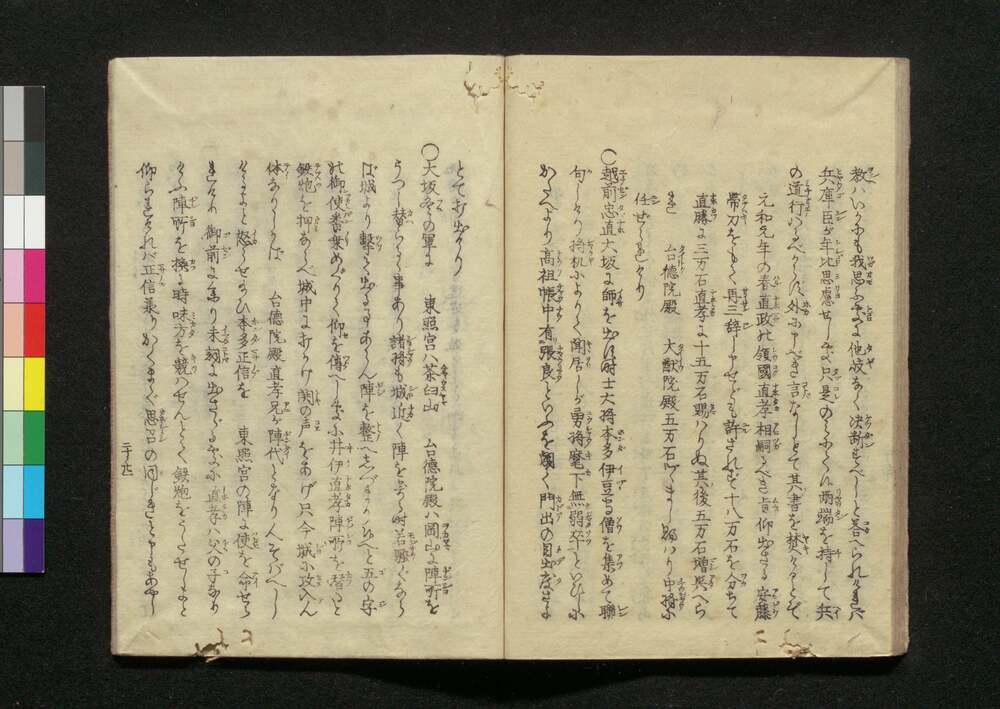 教ハいかにも我思ふ所に他岐なく决断すべしと答へられければ
兵庫臣が年比思慮せしも只是のミふくに両端を持して共
の道行ハるべからず外に申べき言なしとて其書を焚けるとぞ
元和元年の春直政の領國直孝相嗣べき旨仰出さる安藤
帯刀をもて再三辞しけれども許されずて十八万石を分ちて
直勝に三万石直孝に十五万石賜ハりぬ其後五万石増與へら
れ 台德院殿 大猷院殿五万石づゝまし賜ハり中将に
任せられけり
○越前忠直大坂に師を出す時士大将本多伊豆守僧を集めて聯
句しけり将机によりて聞居しが勇将麾下無弱卒といひしに
かたへより高祖帳中有張良といふを聞て門出の目出度さよ
とて打出けり
○大坂冬の軍に 東照宮ハ茶臼山 台德院殿ハ岡山に陣所を
うつし替らるゝ事あり諸将も城近く陣をよする時若騒ぐなら
ば城より撃て出る事あらん陣を整へしづまりかへれと五の字
の御使番乗めぐりて仰を傳へしに井伊直孝陣所を替ると
鉄炮を押ならべ城中に打かけ鬨の声をあげ只今城に攻入ん
体なりしかば 台德院殿直孝兄が陣代となりんそバへし
けるよと怒らせ給ひ本多正信を 東照宮の陣に使を命せら
れける 御前に参り未詞に出さゞる所に直孝ハ父の子なり
けふ陣所を換る時味方を競ハせんとて鉄炮をうたせしよと
仰られければ正信義りかくまで思召の同じきこともあやし
二十九